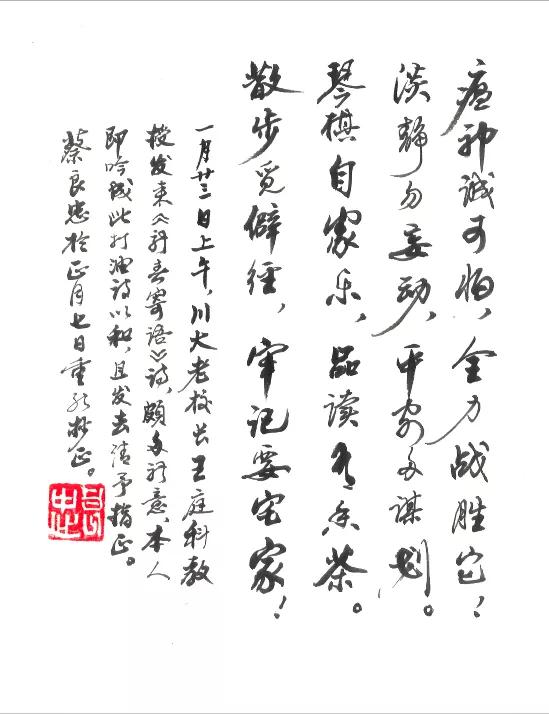 瘟神诚可怕，全力战胜它！
淡静勿妄动，平安多谋划。
琴棋自家乐，品读有香茶。
散步觅僻径，牢记要宅家！
一月廿三日上午，川大老校长王庭科教
授发来《新春寄语》诗，颇多新意，本人
即吟成此打油诗以和，且发去请予指正。
蔡良忠於正月七日重新抄正。
良忠